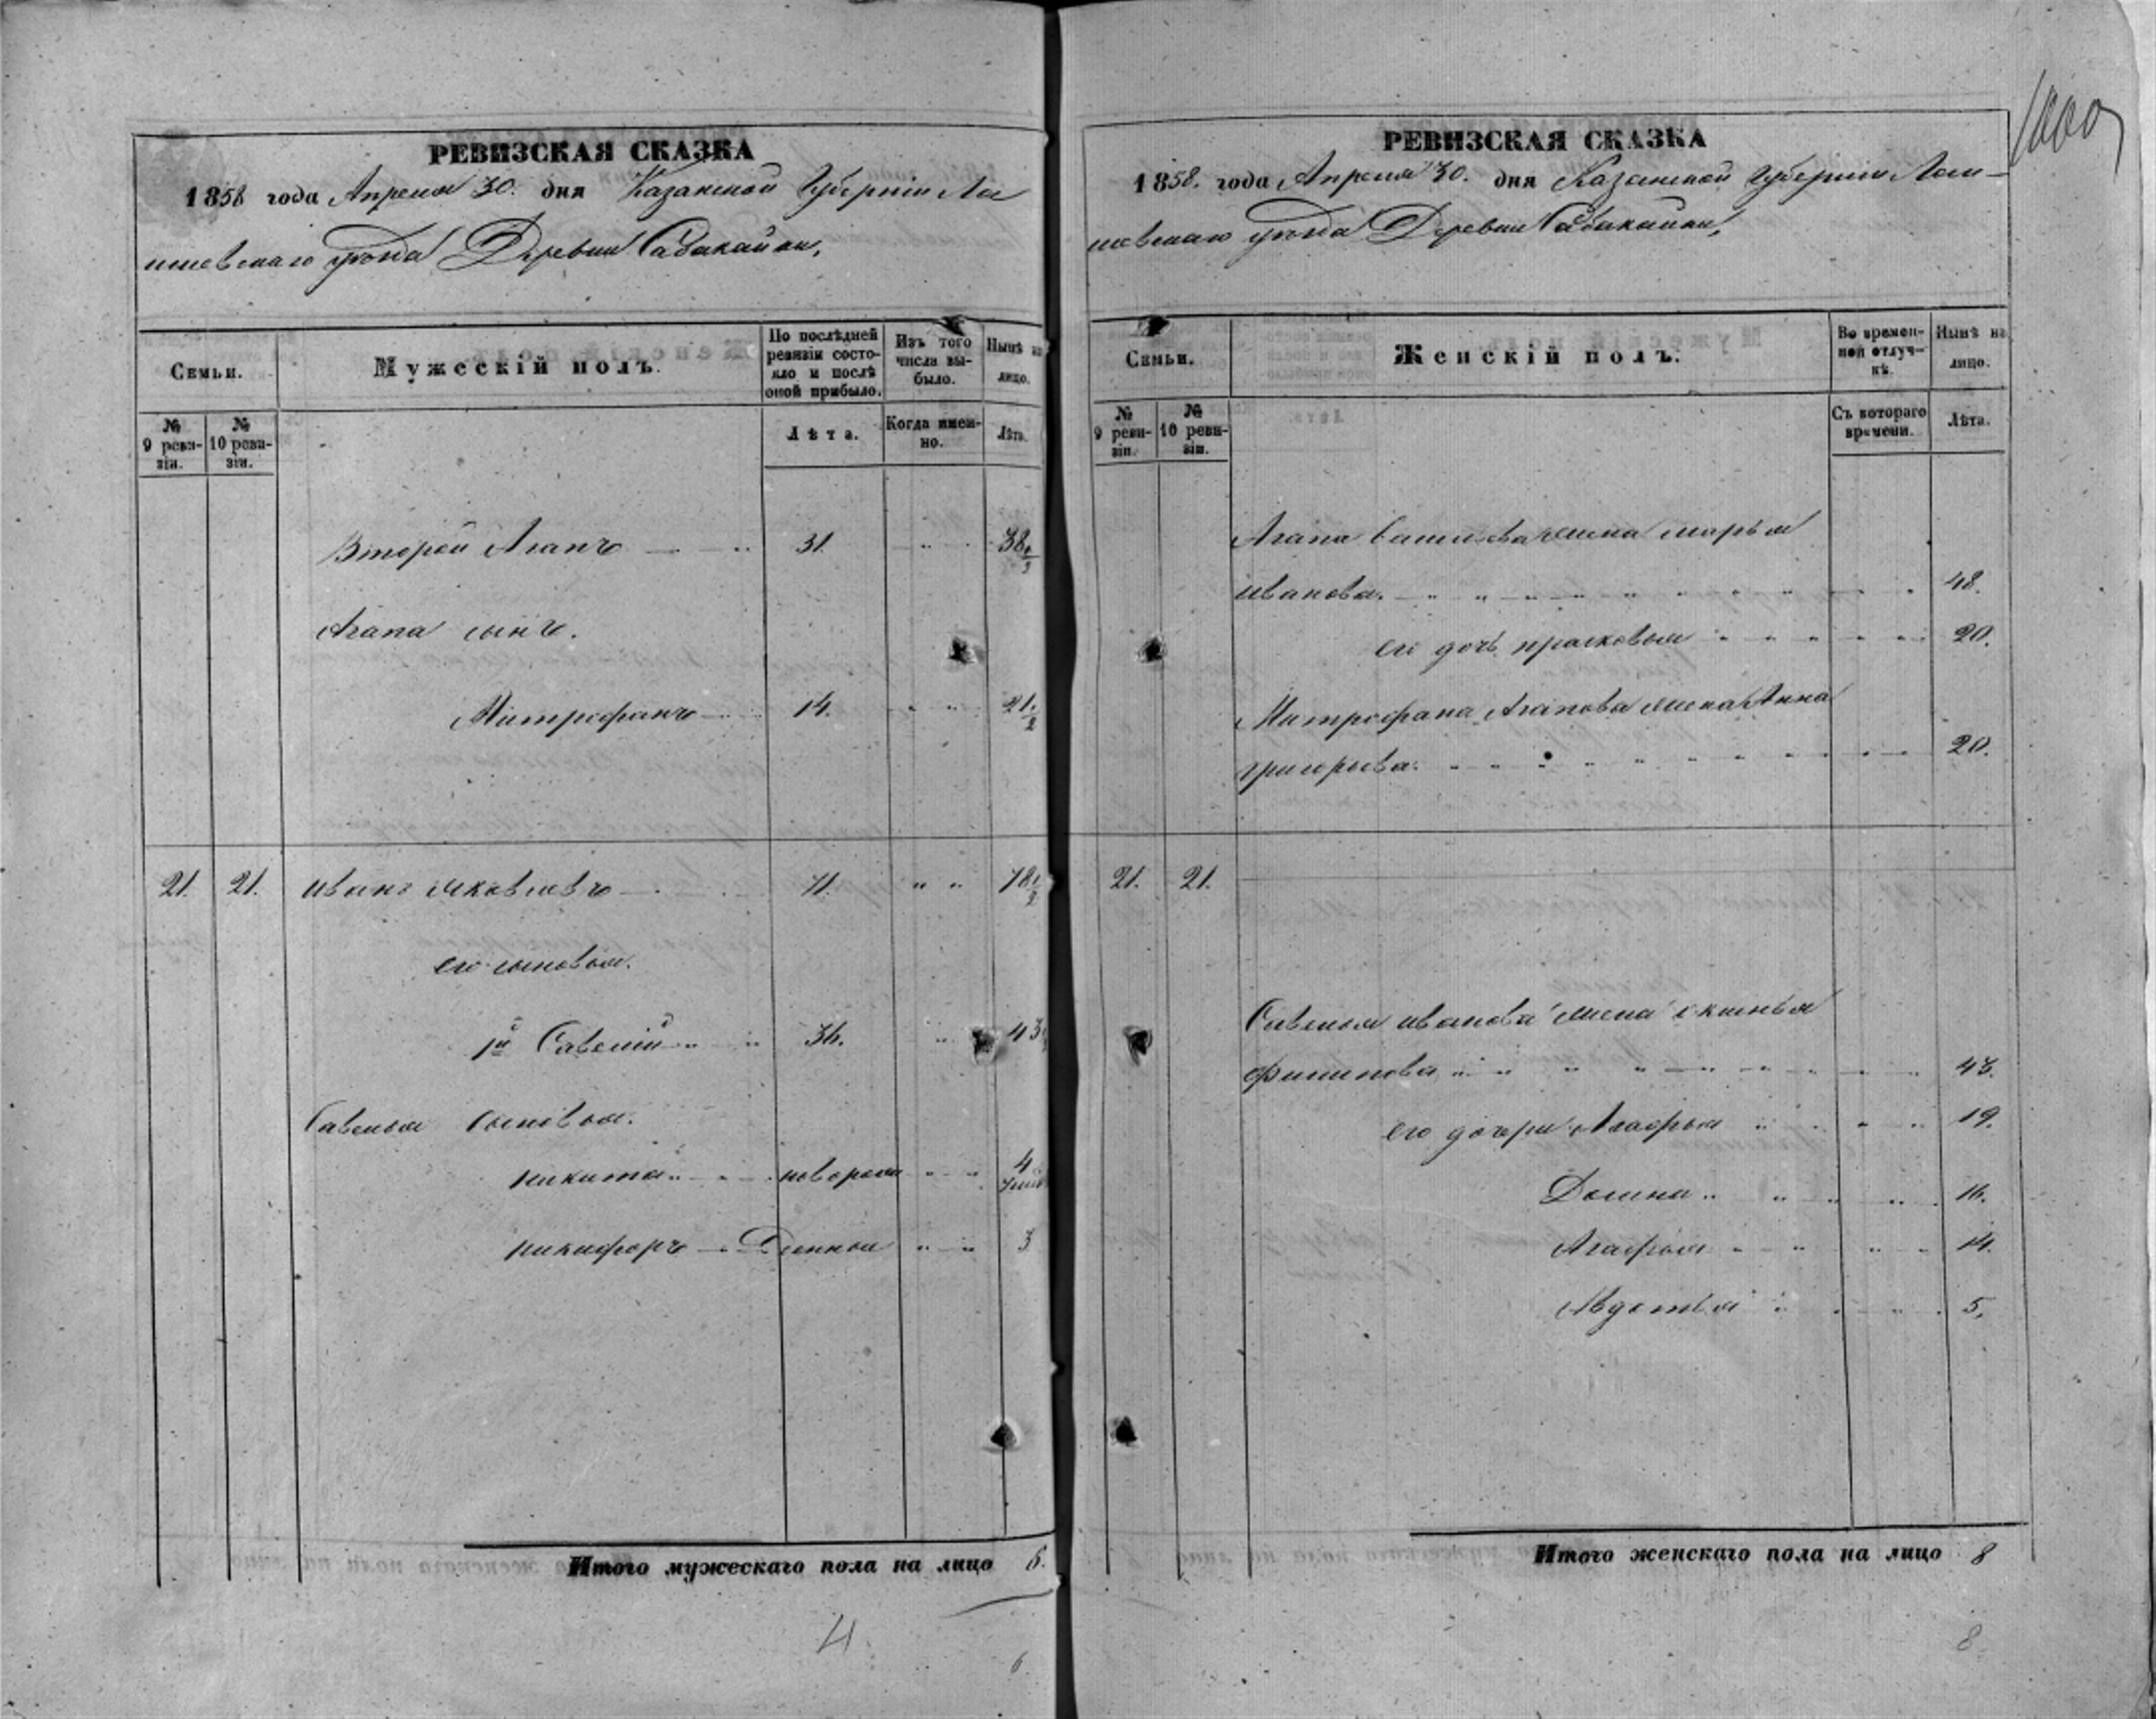 РЕВИЗСКАЯ СКАЗКА
1858 года Апреля 30. дня Казанской Губернiи Ла
ишевскаго уѣзда Деревни Сабакайки,
Семьи.
Мужескiй полъ.
По послѣдней ревизiи состо-
яло и послѣ оной прибыло.
Изъ того числа вы-
было.
Нынѣ на лицо.
№ 9 реви-
зiи.
№ 10 реви-
зiи.
Лѣта.
Когда имен-
но.
Лѣта.
Второй Агапъ 31. 38 1/2
Агапа сынъ.
Митрофанъ 14. 21 1/2
21. 21. иванъ яковлевъ 71. 78 1/2
его сыновья.
1й Савелiй 36. 43
Савелья сыновья.
никита новорож 4
никифоръ Денной 3
Итого мужескаго пола на лицо 6.
6
РЕВИЗСКАЯ СКАЗКА
1858. года Апреля 30. дня Казанской Губернiи Лаи-
шевскаго уѣзда Деревни Сабакайки,
Семьи.
Женскiй полъ.
Во времен-
ной отлуч-
кѣ.
Нынѣ на лицо.
№ 9 реви-
зiи.
№ 10 реви-
зiи.
Съ котораго времени.
Лѣта.
Агапа Васильева жена марья
иванова. 48.
его дочь прасковья 20.
Митрофана Агапова жена Анна
григорьева. 20.
21. 21.
Савелья иванова жена аксинья
филипова 43.
его дочери Агафья 19.
Домна 16.
Агафья 14.
Авдотья 5.
Итого женскаго пола на лицо 8
8